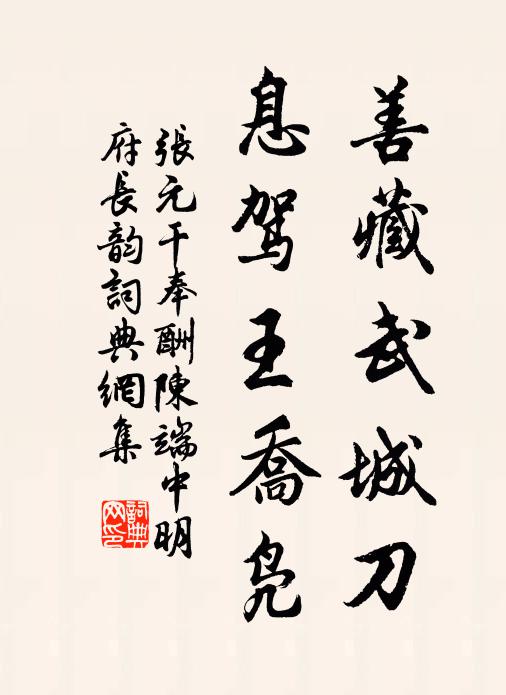 善藏武城刀
息駕王喬鳧
張元干奉酬陳端中明
府長韵詞典網集
詞典网印